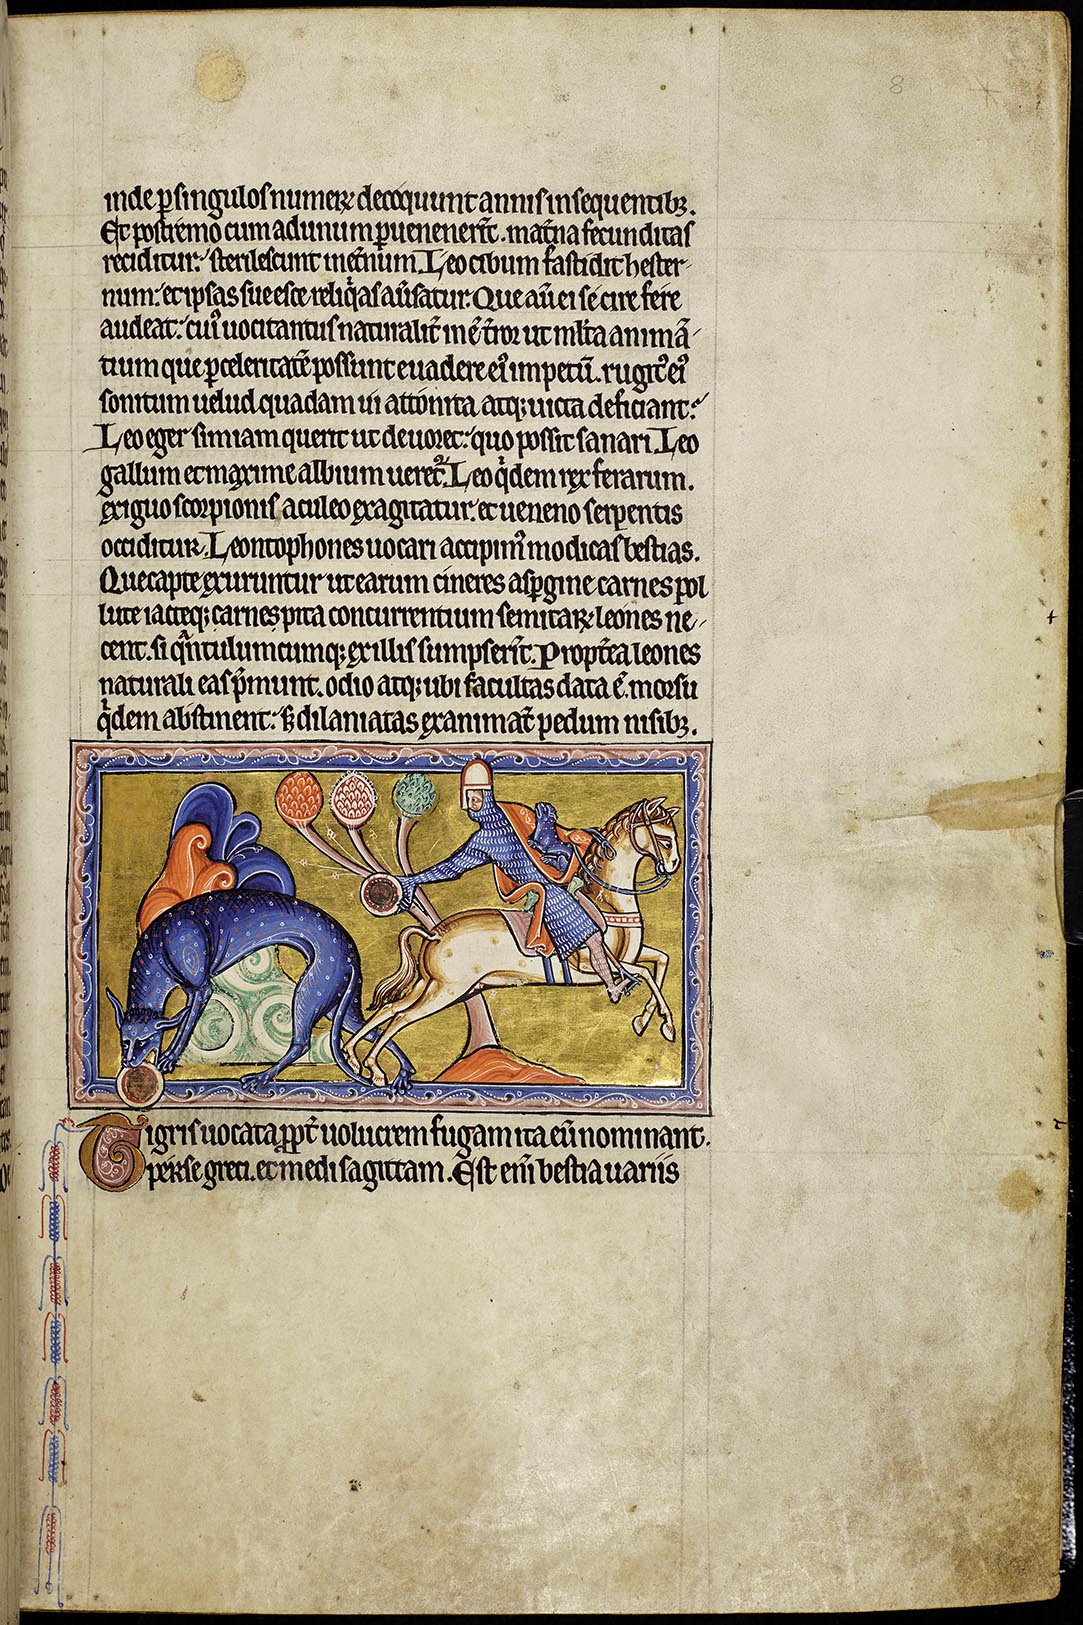 8
inde ꝑ singulos numerꝝ decoquunt annis insequentibꝫ.
Et postremo cum ad unum ꝑuenenerīt. mat̄na fecunditas
reciditur: sterilescunt in et̄num. Leo cibum fastidit hester-
num: et ipsas sue esce reliqͥas au̾satur. Que au̾ ei se cire fere
audeat: cuiꝰ uocitantus naturalit̾ inē t̾ror ut ml̄ta animā-
tium que ꝑ celeritatē possunt euadere eiꝰ impetū. rugitꝰ eiꝰ
sonitum uelud quadam ui attonita atqꝫ uicta deficiant:
Leo eger simiam querit ut deuoret: quo possit sanari. Leo
gallum et maxime album ueret᷑. Leo qͥdem rex ferarum.
exiguo scorpionis aculeo exagitatur: et ueneno serpentis
occiditur. Leontophones uocari accipimꝰ modicas bestias.
Que capte exuruntur ut earum cineres asꝑgine carnes pol
lute iacteqꝫ carnes pita concurrentium semitaꝝ leones ne-
cent. si qͣntulumcumqꝫ ex illis sumpserīt. Propt̾ea leones
naturali eas p̄munt. odio atqꝫ ubi facultas data ē. morsu
qͥdem abstinent: ꝫ dilaniatas exanimat̄ pedum nisibꝫ.
Tigris uocata ꝓpt̾ uolucrem fugam ita eū nominant.
perse greci. et medi sagittam. Est enī bestia uariis